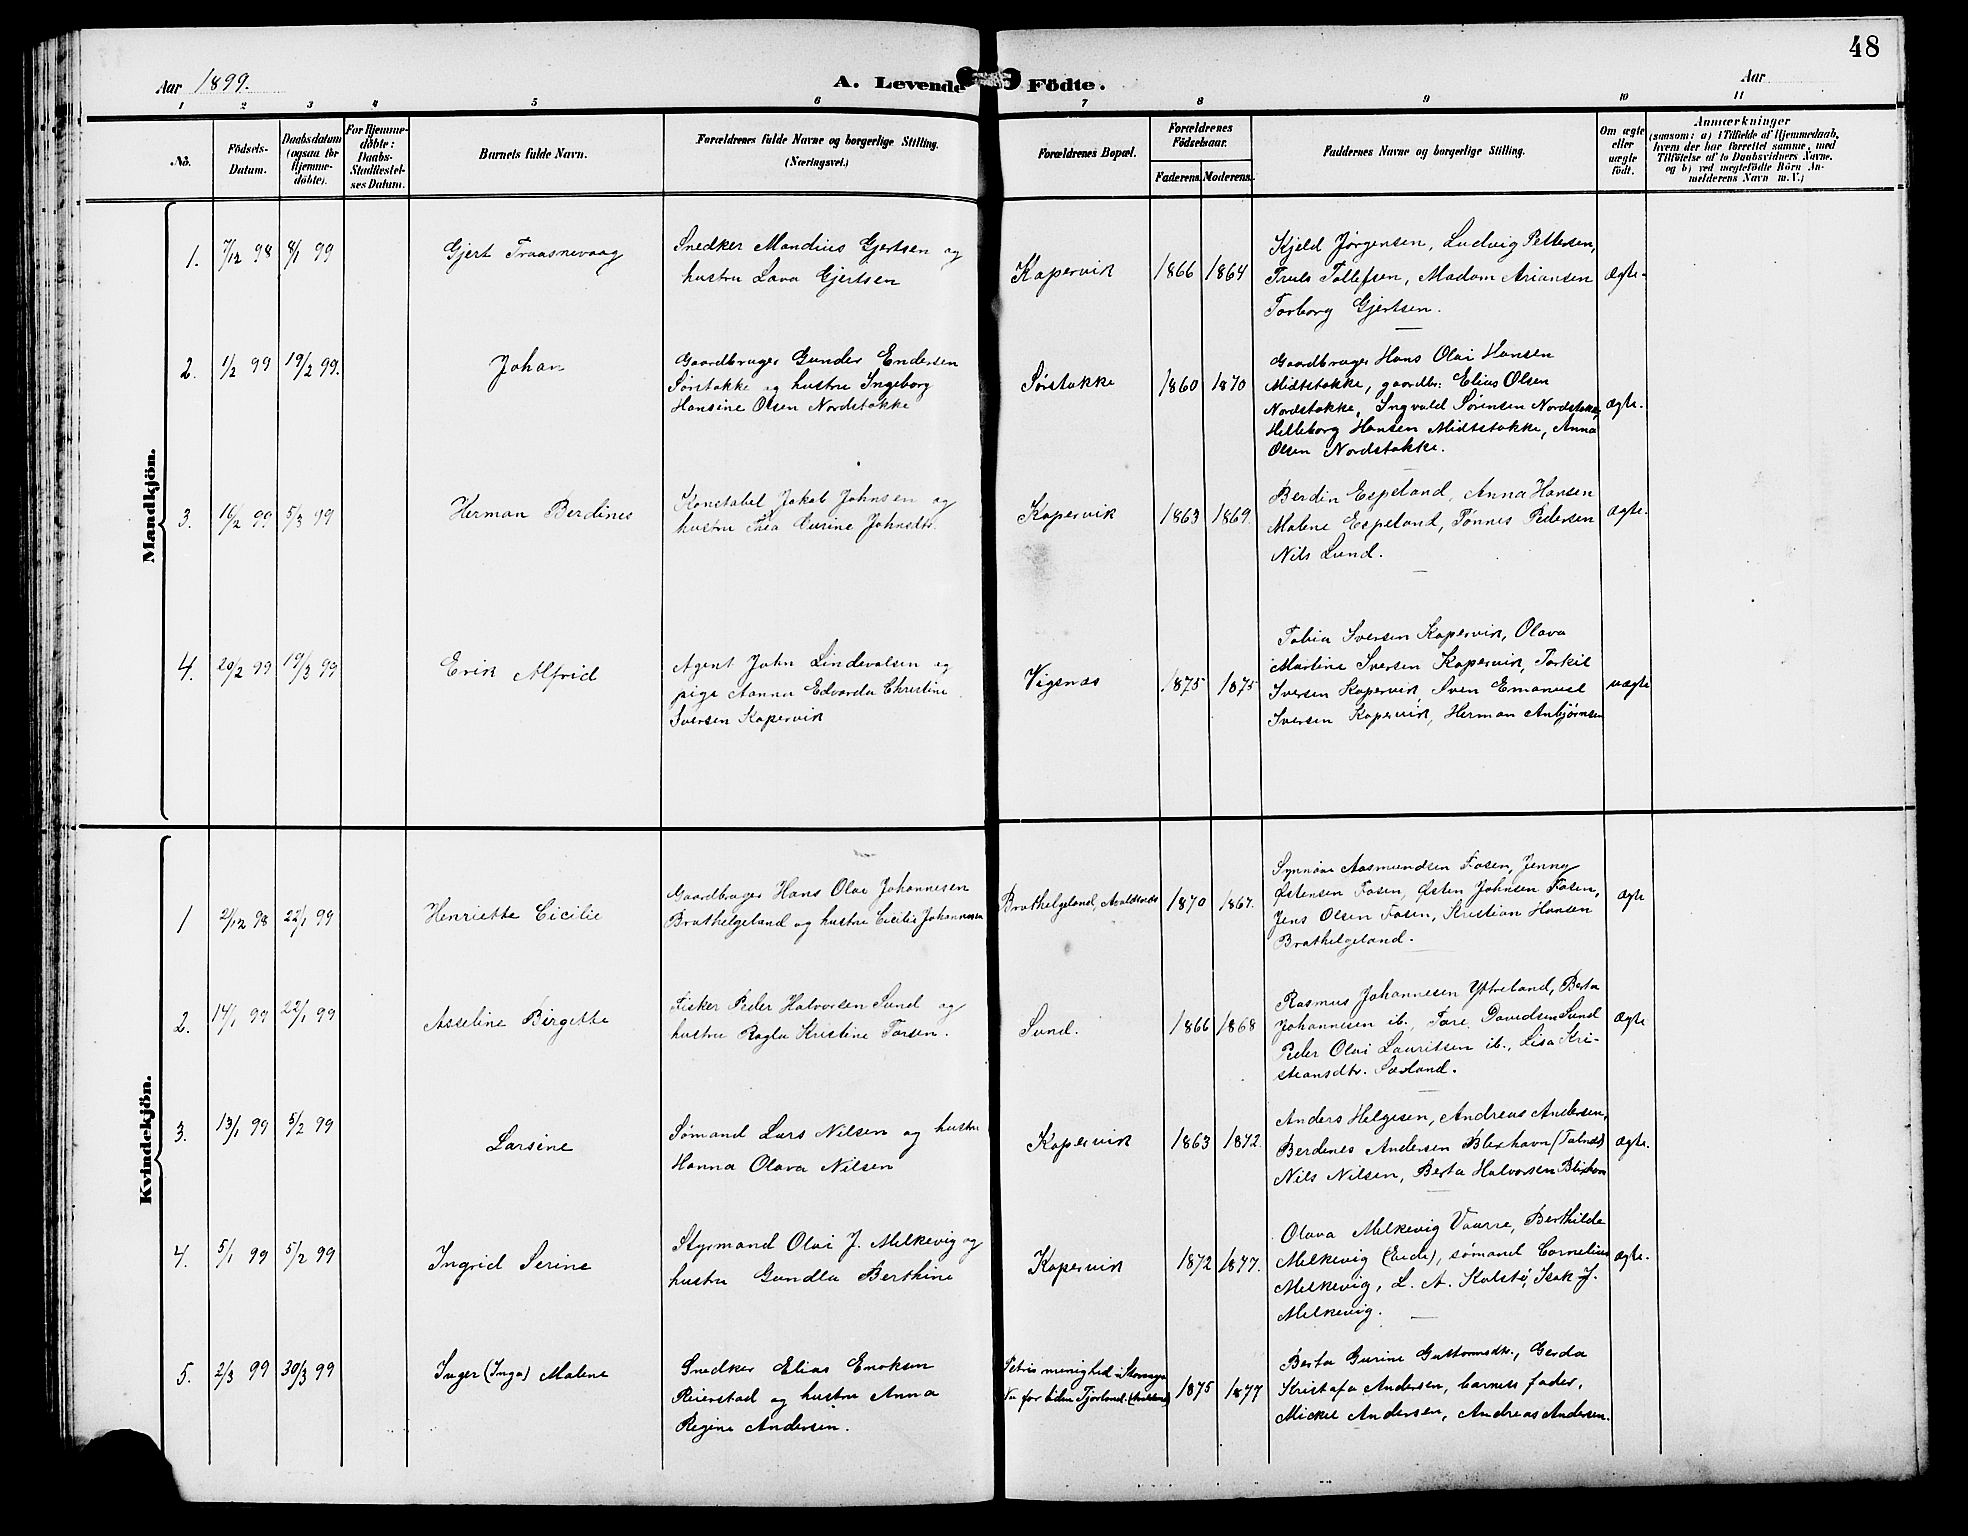 48
Aar 1899.
A. Levende Födte.
Aar
1 2 3 4 5 6 7 8 9 10 11
No.
Födsels-
Datum.
Daabsdatum
(ogsaa for
Hjemme-
döbte).
For Hjemme-
döbte:
Daabs-
Stadfestel-
ses Datum.
Barnets fulde Navn.
Forældrenes fulde Navne og borgerlige Stilling.
(Næringsvei.)
Forældrenes Bopæl.
Forældrenes
Födselsaar.
Faderens. Moderens.
Faddernes Navne og borgerlige Stilling.
Om ægte
eller
uægte
født.
Anmærkninger
(saasom: a) i Tilfælde af Hjemmedaab,
hvem der har forrettet samme, med
Tilföielse af to Daabsvidners Navne.
og b) ved uægtefödte Börn An-
melderens Navn m. V.)
Mandkjön.
1. 7/12 98 8/1 99
Gjert Traasnevaag
Snedker Mandius Gjertsen og
hustru Lava Gjertsen
Kopervik 1866 1864
Kjeld Jørgensen, Ludvig Pettersen,
Truls Tollefsen, Madam Ariansen
Torborg Gjertsen.
Ægte.
2. 1/2 99 19/2 99.
Johan
Gaardbruger Gunder Endersen
Sørstokke og hustru Ingeborg
Hansine Olsen Nordstokke
Sørstokke 1860 1870
Gaardbruger Hans Olai Hansen
Midtstokke, gaardbr: Elias Olsen
Nordstokke, Ingvald Sørensen Nordstokke,
Helleborg Hansen Midtstokke, Anna
Olsen Nordstokke.
Ægte.
3. 16/2 99 5/3 99
Herman Berdines
Konstabel Jakob Johnsen og
hustru Thea Johnsdtr.
Kopervik 1863 1869.
Berdin Espeland, Anna Hansen
Malene Espeland, Tønnes Pedersen
Nils Lund.
Ægte.
4. 20/2 99 19/3 99
Erik Alfrid
Agent John Lindevalsen og
pige Aanna Edvarda Christine
Iversen Kopervik
Vigsnæs 1875 1875
Tobia Iversen Kopervik, Olava
Martine Iversen Kopervik, Torkil
Iversen Kopervik, Sven Emanuel
Iversen Kopervik, Herman Anbjørnsen
uægte
Kvindekjön.
1 2/12 98 22/1 99
Henriette Cicilie
Gaardbruger Hans Olai Johannesen
Brathelgeland og hustru Cecilie Johannesen
Brathelgeland, Avaldsnes 1870 1867.
Synnøve Aasmundsen Fosen, Jenny
Østensen Fosen, Østen Johnsen Fosen,
Jens Olsen Fosen, Kristian Hansen
Brathelgeland.
Ægte
2. 14/1 99 22/1 99
Asseline Birgitte
Fisker Peder Halvorsen Sund og
hustru Ragla Kristine Torsen.
Sund. 1866 1868
Rasmus Johannesen Ytreland, Berta
Johannesen ib., Tore Davidsen Sund
Peder Olai Lauritsen ib., Lisa Kri-
stiansdtr. Sæland.
Ægte
3. 13/1 99 5/2 99
Larsine
Sømand Lars Nilsen og hustru
Hanna Olava Nilsen
Kopervik 1863 1872.
Anders Helgesen, Andreas Andersen,
Berdenes Andersen Blixhavn (Talnes)
Nils Nilsen, Berta Halvorsen Blixhavn
Ægte.
4. 5/1 99 5/2 99
Ingrid Serine
Styrmand Olai J. Melkevig og
hustru Gundla Berthine
Kopervik 1872 1877.
Olava Melkevig Vaarre, Berthilde
Melkevig (Eide), sømand Cornelius
Melkevig, L. A. Kolstø, Isak J.
Melkevig.
Ægte.
5. 2/3 99 30/3 99
Inger (Inga) Malene
Snedker Elias Enoksen
Reierstad og hustru Anna
Regine Andersen.
Petris menighed i Stavanger
Nu for tiden Fjorland. 1875 1877
Berta Gurine Guttormsdtr., Gerda
Kristofa Andersen, barnets fader,
Mickel Andersen, Andreas Andersen.